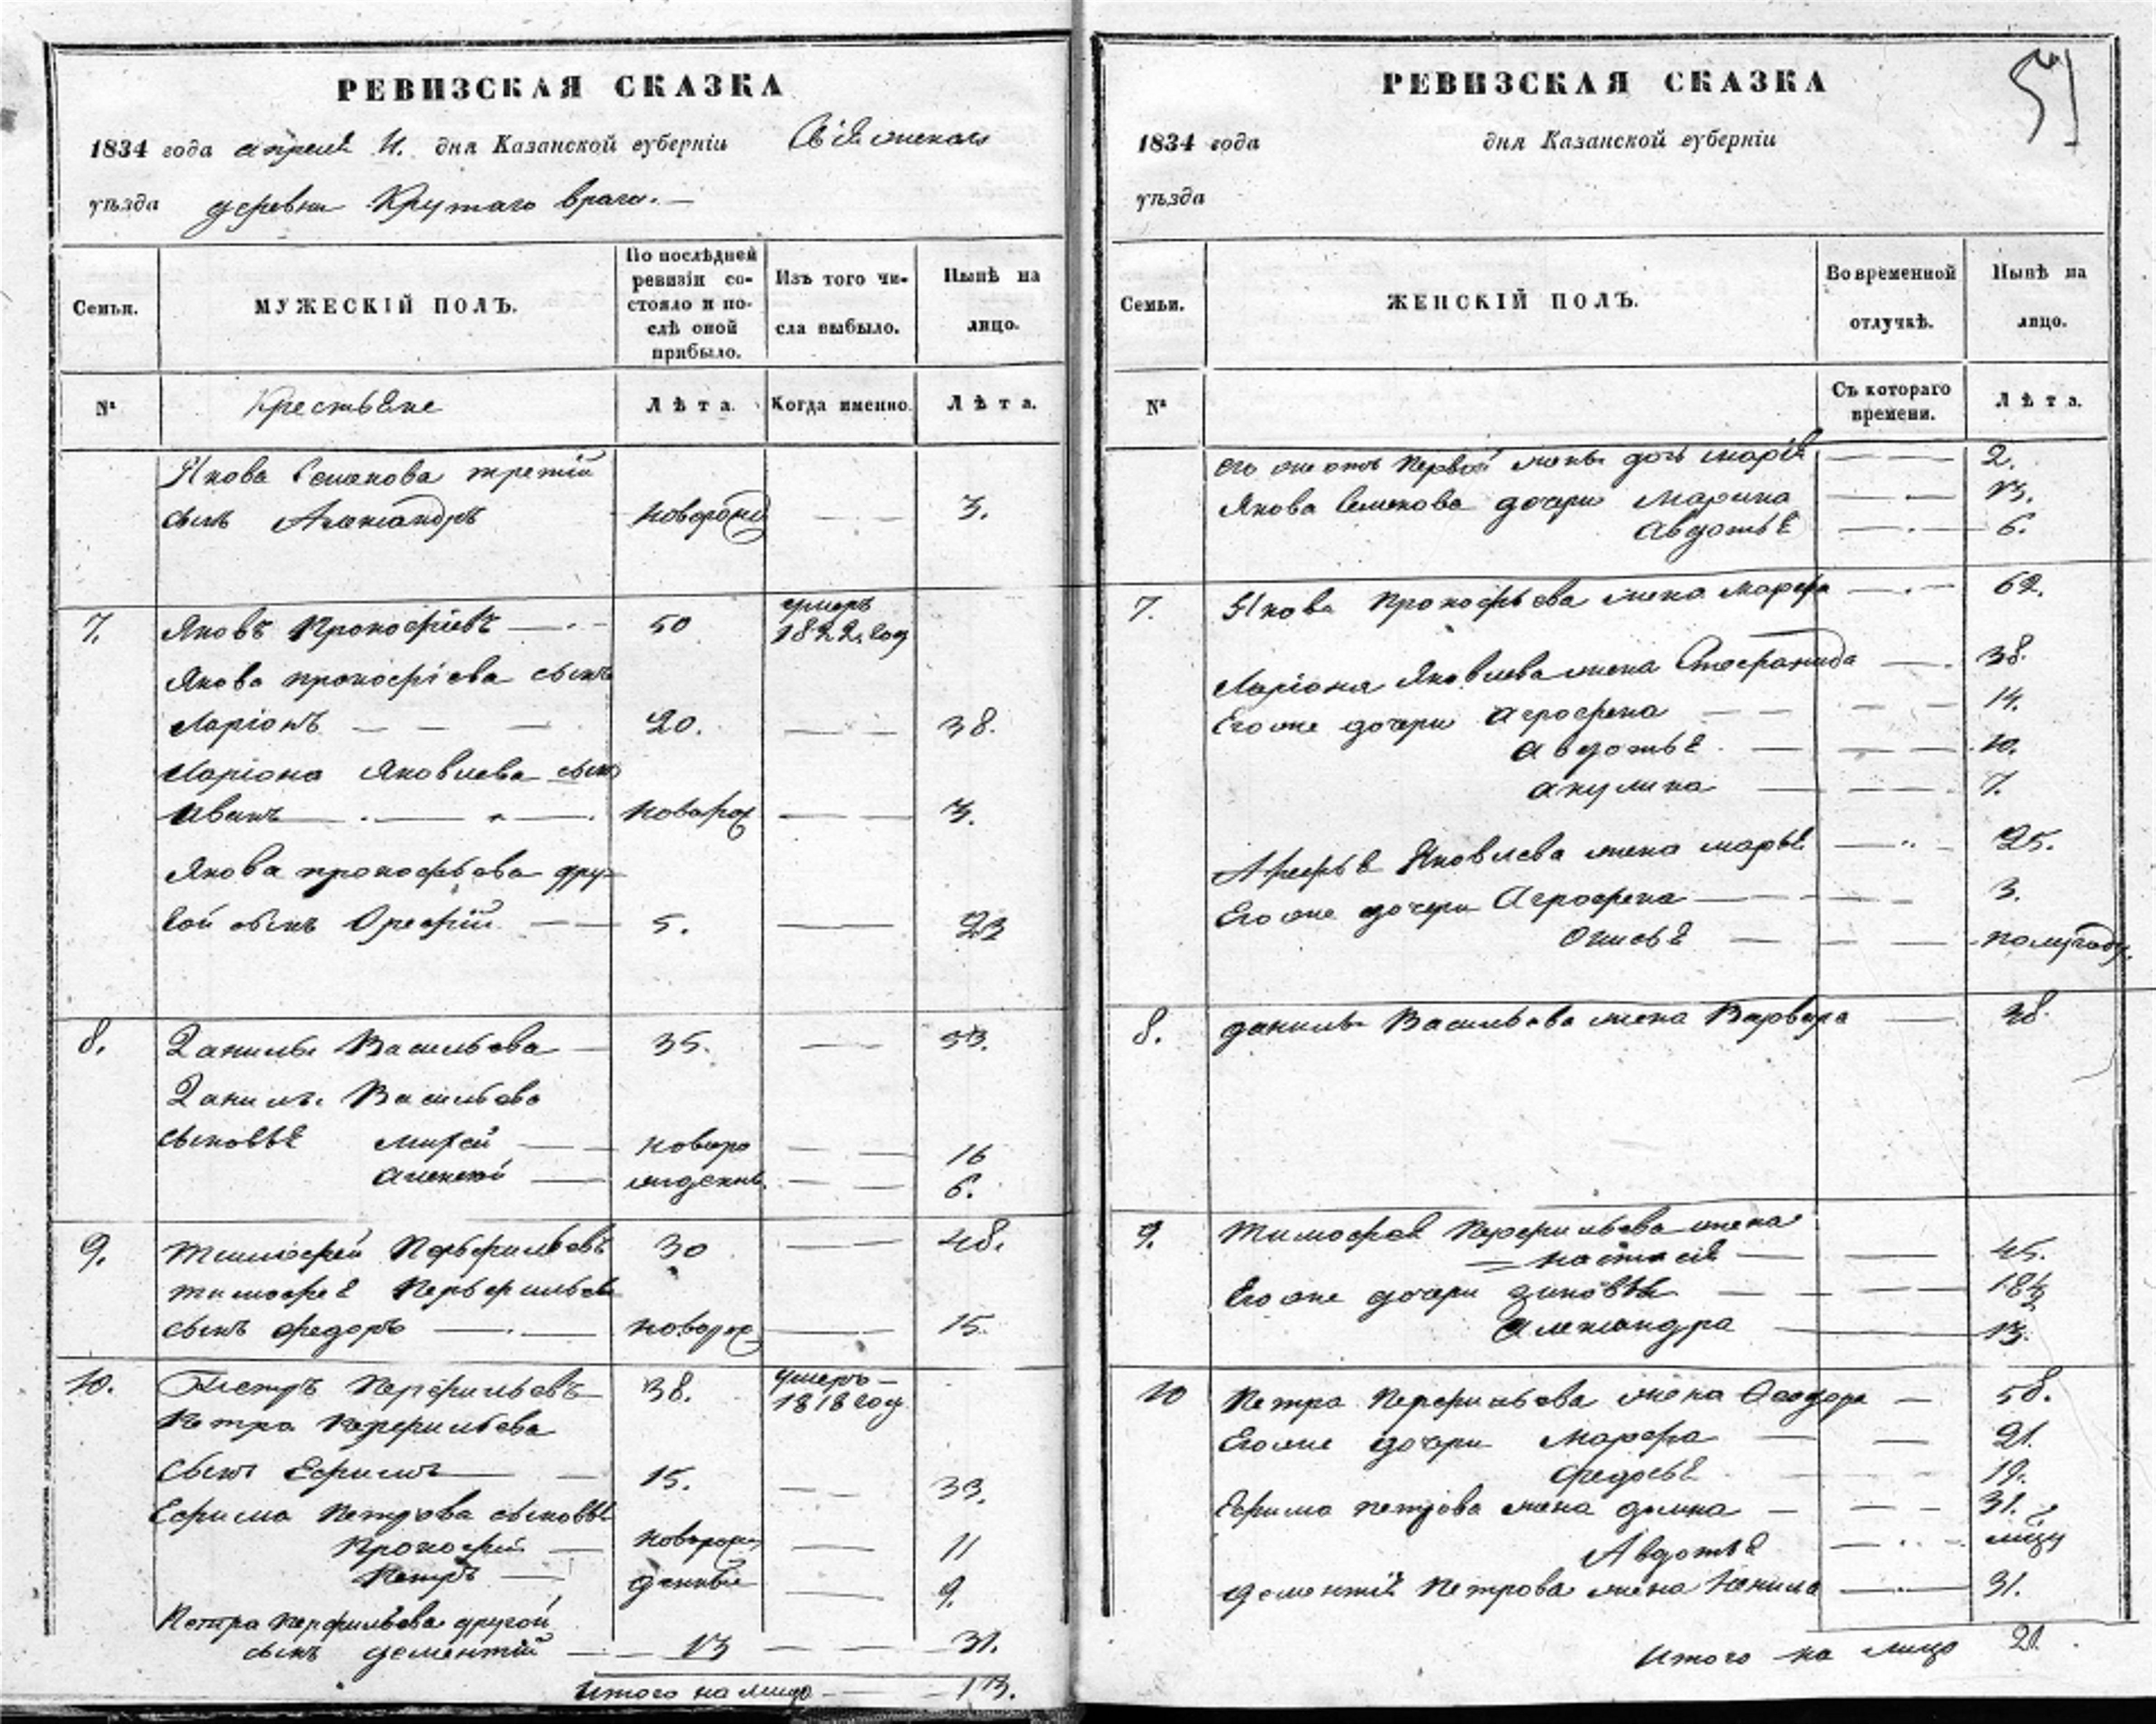 РЕВИЗСКАЯ СКАЗКА
1834 года апреля 11. дня Казанской губерніи Свіяжскаго
уѣзда деревни Крутаго врага. —
Семьи.
МУЖЕСКІЙ ПОЛЪ.
По послѣдней
ревизіи со-
стояло и по-
слѣ оной
прибыло.
Изъ того чи-
сла выбыло.
Нынѣ на
лицо.
№
Крестьяне
Лѣта.
Когда именно.
Лѣта.
Якова Семенова третій
сынъ Александръ новорожд — — 3.
7. Яковъ Прокофіевъ — 50 умеръ
1822. год
Якова прокофіева сынъ
Ларіонъ — — — 20. — — 38.
Ларіона Яковлева сынъ
Иванъ — — — новорож — — 3.
Якова прокофьева дру-
гой сынъ Орефій — 5. — 23
8. Данилы Васильева — 35. — 53.
Данилы Васильева
сыновья Мирей — новоро — — 16
алексей — жденны. — — 6.
9. Тимофей Перьфильевъ 30 — 48.
тимофея Перьфильева
сынъ федоръ — — новорож — 15.
10. Петръ Перфильевъ — 38. умеръ —
1818 году
Петра Перфильева
сынъ Ефимъ — — 15. — — 33.
Ефима Петрова сыновья
Прокофій — новорож — 11
Петръ — денные — 9.
Петра перфильева другой
сынъ дементій — — 13 — — — 31.
Итого на лицо — — 13.
РЕВИЗСКАЯ СКАЗКА
51
1834 года дня Казанской губерніи
уѣзда
Семьи.
ЖЕНСКІЙ ПОЛЪ.
Во временной
отлучкѣ.
Нынѣ на
лицо.
№
Съ котораго
времени.
Лѣта.
его же отъ Первой жены дочь марія — — 2.
Якова Семенова дочери Марина — — 13.
Авдотья — — 6.
7. Якова Прокофьева жена марфа — — 62.
Ларіона Яковлева жена Стефанида — 38.
Его же дочери агрофена — — — — 14.
авдотья — — — 10.
акулина — — — 7.
Арефья Яковлева жена марья — — 25.
Его же дочери Агрофена — — — 3.
Офисья — — — полугоду.
8. данилы Васильева жена Варвара — 38.
9. Тимофея Перфильева жена
настасія — — 45.
Его же дочери зиновья — — — 18½
Александра — 13.
10 Петра Перфильева жена Феодора — 58.
Его же дочери Марфа — — 21.
Федосья — — 19.
Ефима петрова жена домна — — — 31.
Авдотья — — —
дементія Петрова жена Ненила — — 31.
Итого на лицо 21.